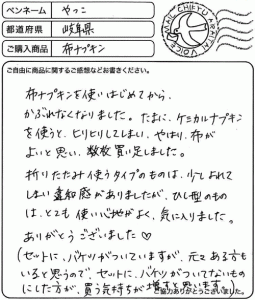 ペンネーム やっこ
都道府県 岐阜県
ご購入商品 布ナプキン
MAIL CHIEFU ARIHATAI VOICE
ご自由に商品に関するご感想などお書きください。
布ナプキンを使いはじめてから、
かぶれなくなりました。たまに、ケミカルナプキン
を使うと、ヒリヒリしてしまい、やはり、布が
よいと思い、数枚買い足しました。
折りたたみ使うタイプのものは、少しおれて
しまい違和感がありましたが、ひし型のもの
は、とても使いい地がよく、気に入りました。
ありがとうございました♡
(セットに、バケツがついていますが、元々ある方も
いると思うので、セットに、バケツがついてないもの
にした方が、買う気持ちが増すと思います。)
ご協力ありがとうございました。